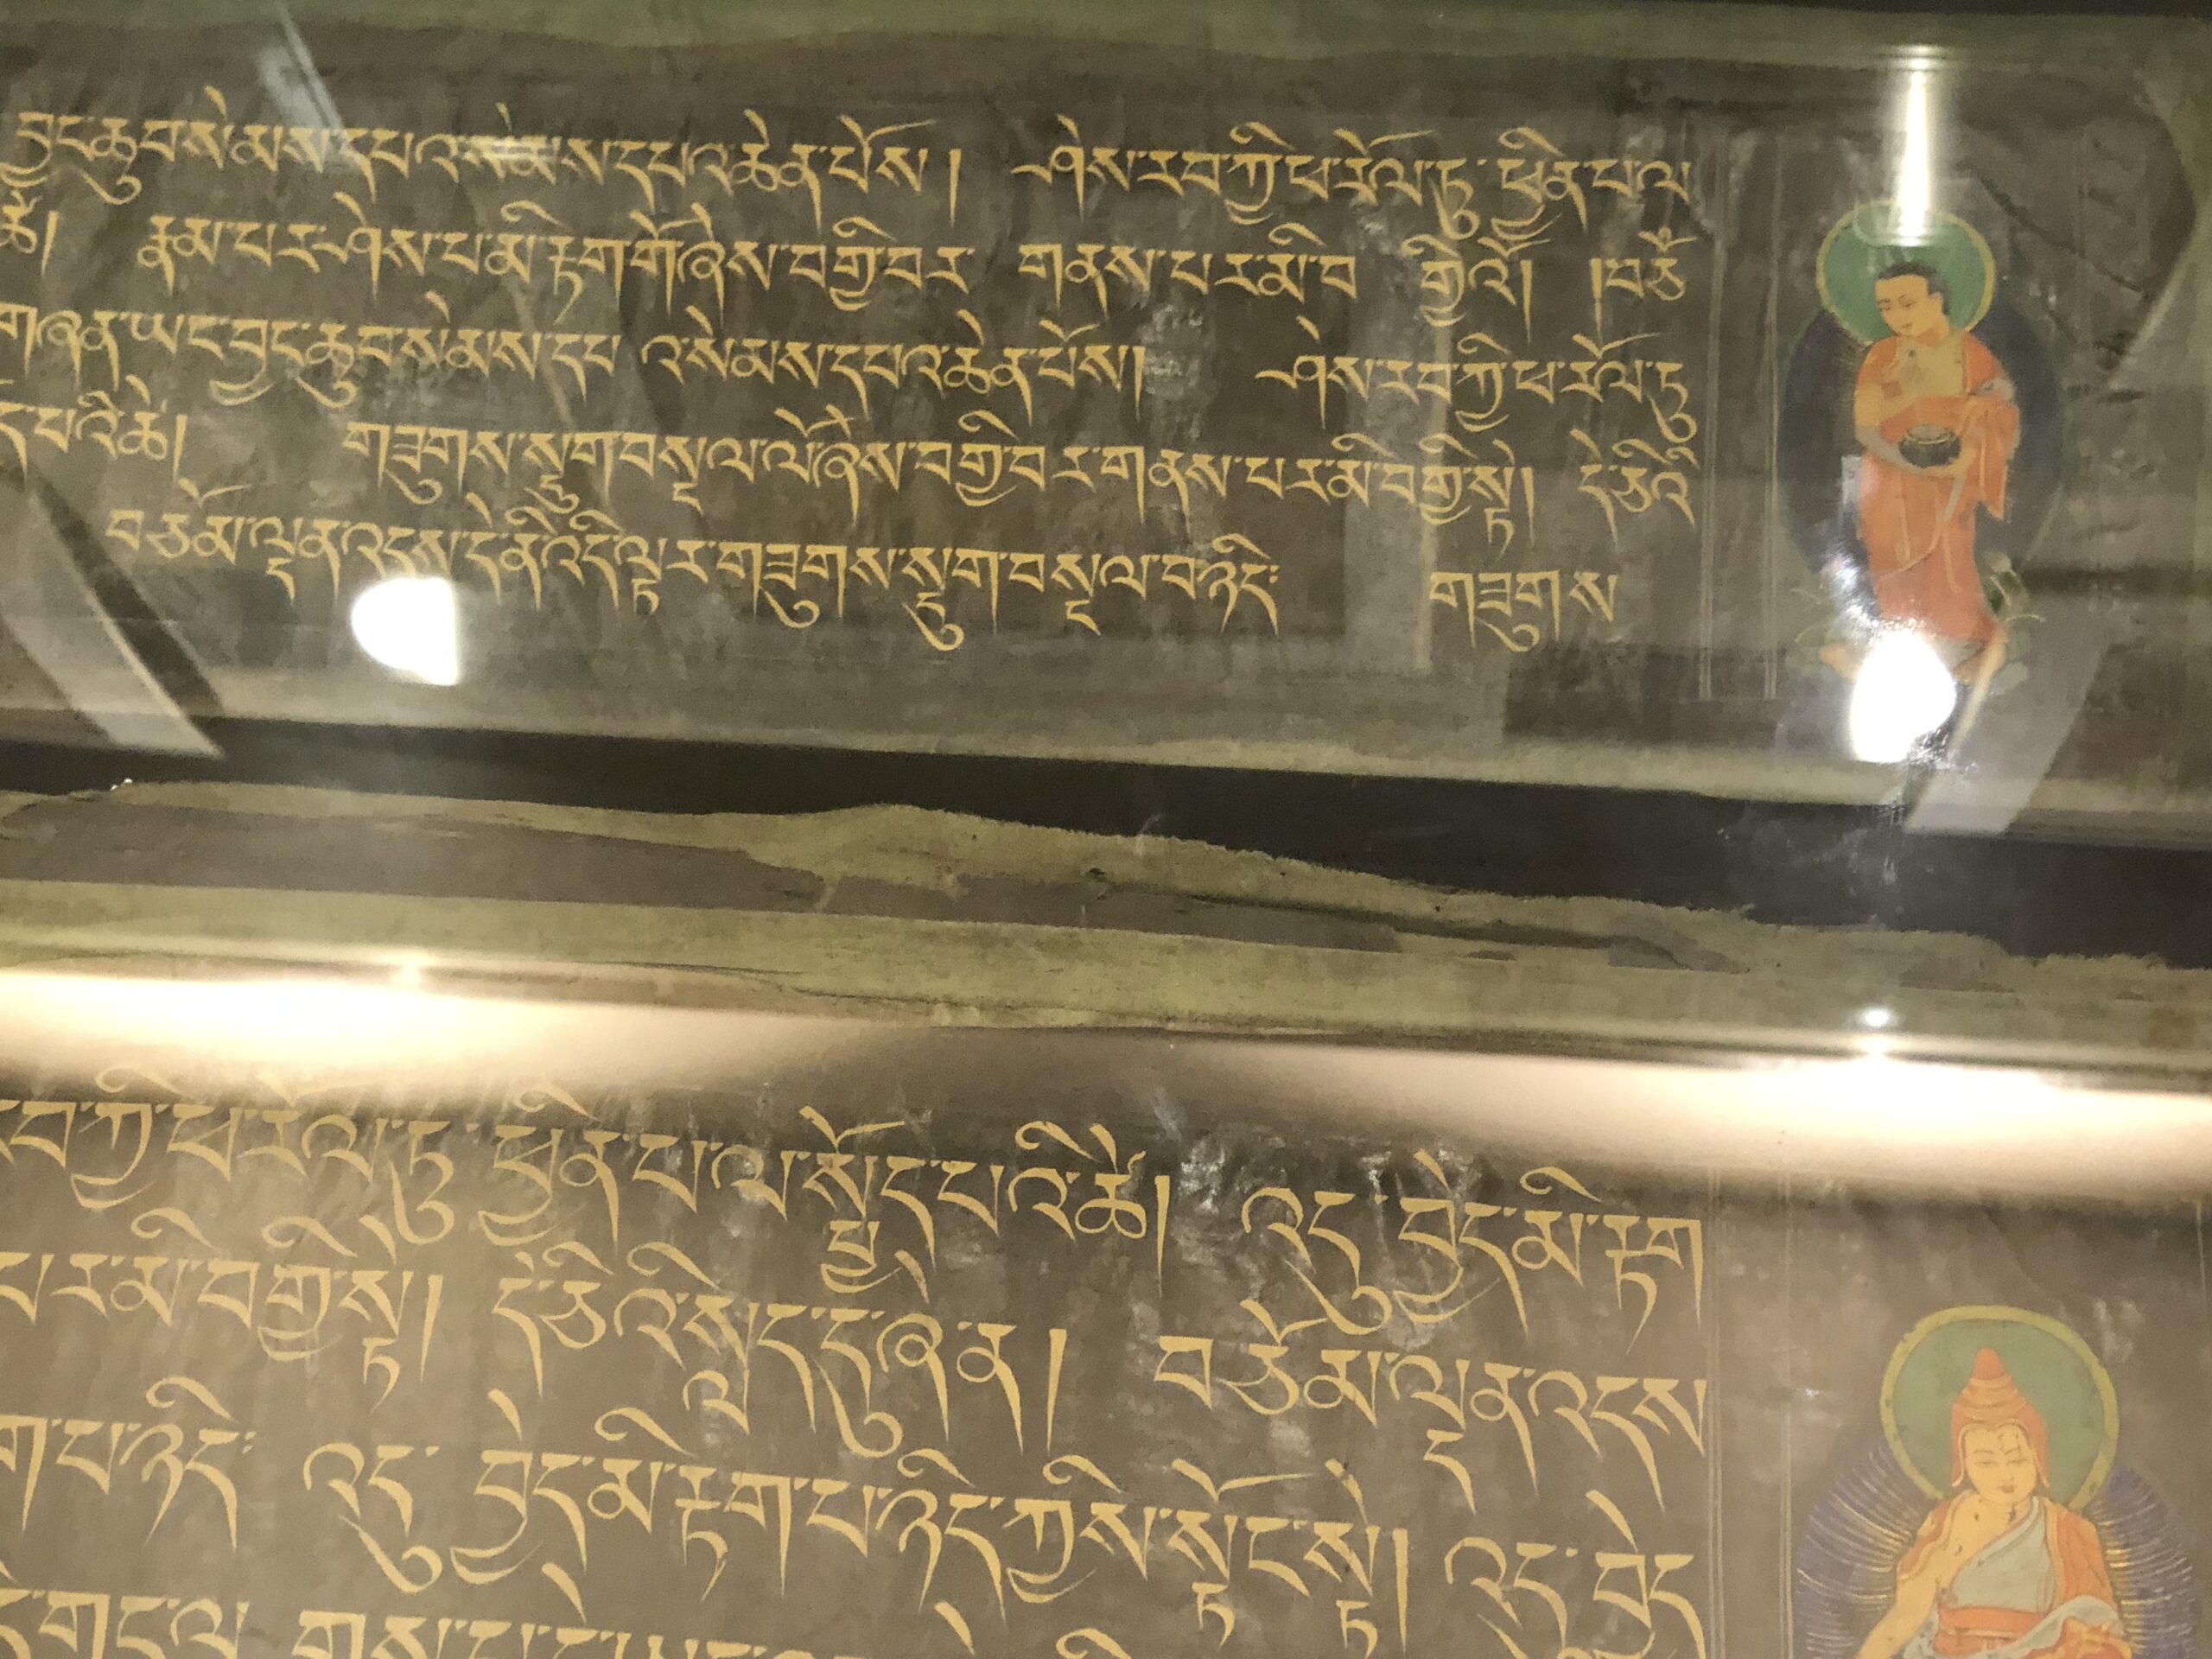 བྱང་ཆུབ་སེམས་དཔའ་སེམས་དཔའ་ཆེན་པོས། ཤེས་རབ་ཀྱི་ཕ་རོལ་ཏུ་ཕྱིན་པ་ལ
ཚེ། རྣམ་པར་ཤེས་པ་མི་རྟག་གོ་ཞེས་བགྱི་བར གནས་པར་མི་བ གྱིའོ། །བཅོ
གཞན་ཡང་བྱང་ཆུབ་སེམས་དཔ འ་སེམས་དཔའ་ཆེན་པོས། ཤེས་རབ་ཀྱི་ཕ་རོལ་ཏུ
ད་པའི་ཚེ། གཟུགས་སྡུག་བསྔལ་ལོ་ཞེས་བགྱི་བར་གནས་པར་མི་བགྱི་སྟེ། དེ་ཅིའི
བཅོམ་ལྡན་འདས་དེ་ནི་འདི་ལྟར་གཟུགས་སྡུག་བསྔལ་བ་ཉིད་ གཟུགས
བ་ཀྱི་ཕ་རོལ་ཏུ་ཕྱིན་པ་ལ་སྤྱོད་པའི་ཚེ། འདུ་བྱེད་མི་རྟག
པར་མི་བགྱི་སྟེ། དེ་ཅིའི་སླད་དུ་ཞེ་ན། བཅོམ་ལྡན་འདས
ག་པ་ཉིད་ འདུ་བྱེད་མི་རྟག་པ་ཉིད་ཀྱིས་སྟོང་སྟེ། འདུ་བྱེད